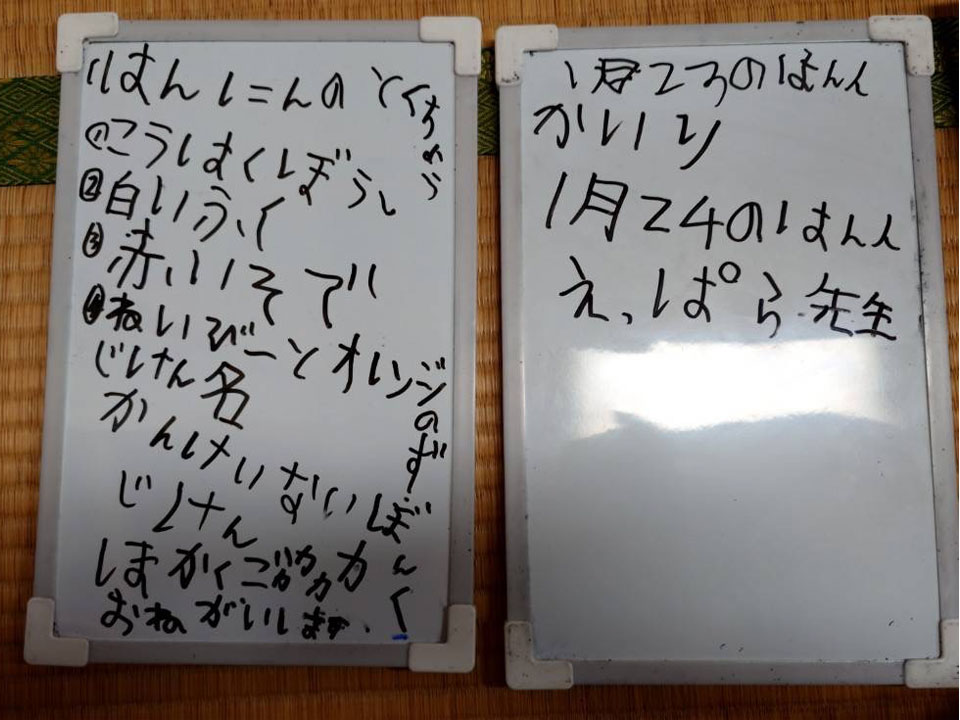 はんにんのとくちょう
①こうはくぼうし
②白いふく
③赤いそで
④ねいびーとオレンジのずぼんく
じけん名
かんけいない
じけん
おねがいします。
1月23のはんん
かいり
1月24のはんん
えっぱら先生